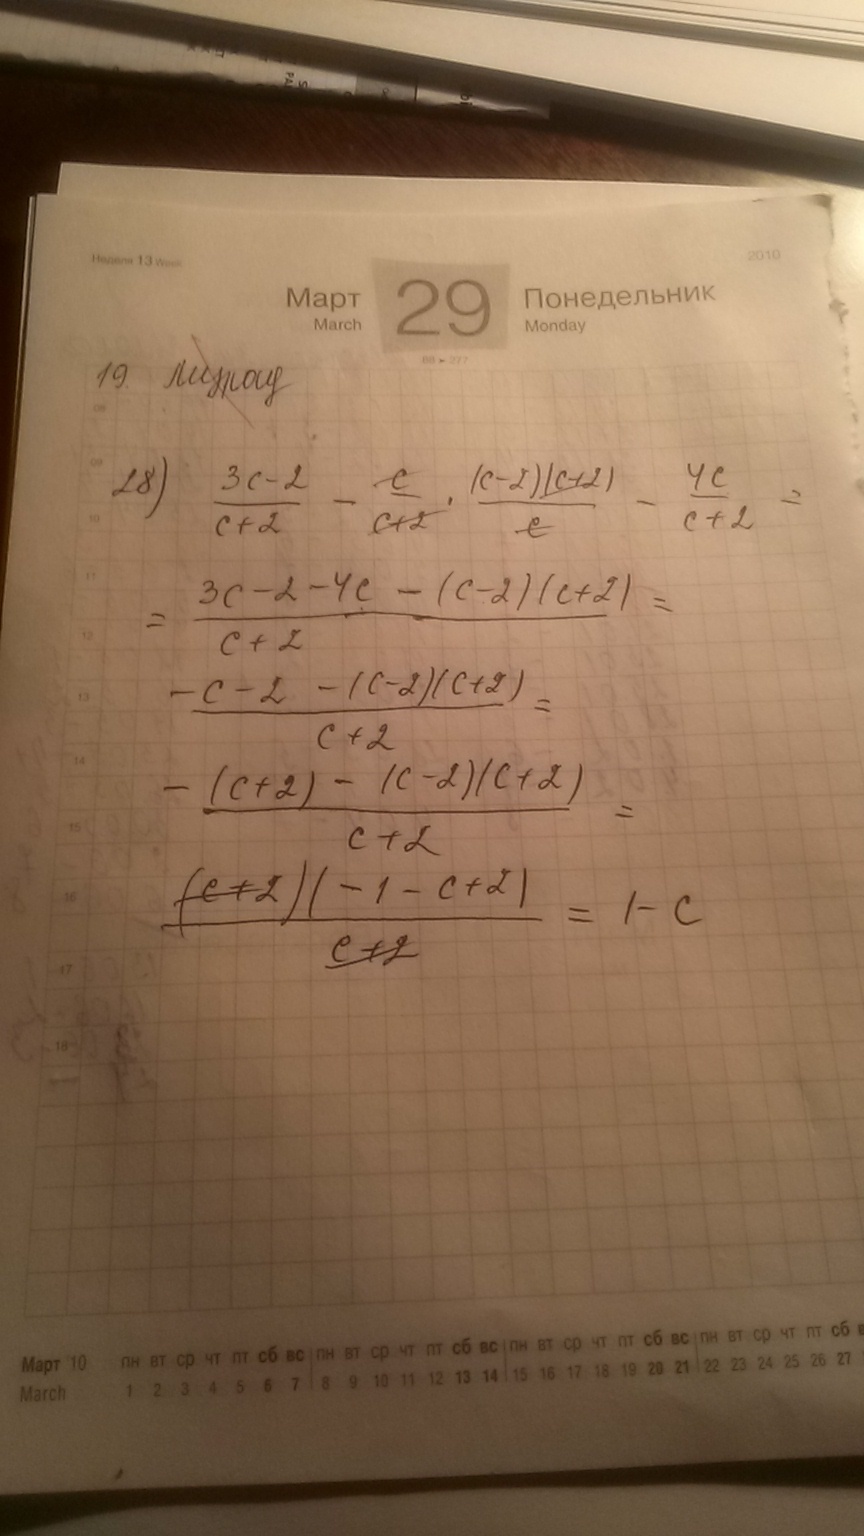 Неделя 13 Week
2010
Март 29 Понедельник
March Monday
88 ▸ 277
19.
28) (3c-2)/(c+2) - c/(c+2) · (c-2)(c+2)/c - 4c/(c+2) =
= (3c-2-4c - (c-2)(c+2))/(c+2) =
(-c-2 -(c-2)(c+2))/(c+2) =
(-(c+2) - (c-2)(c+2))/(c+2) =
(c+2)(-1-c+2)/(c+2) = 1-c
09
09
10
11
12
13
14
15
16
17
18
Март '10 пн вт ср чт пт сб вс пн вт ср чт пт сб вс пн вт ср чт пт сб вс пн вт ср чт пт сб
March 1 2 3 4 5 6 7 8 9 10 11 12 13 14 15 16 17 18 19 20 21 22 23 24 25 26 27